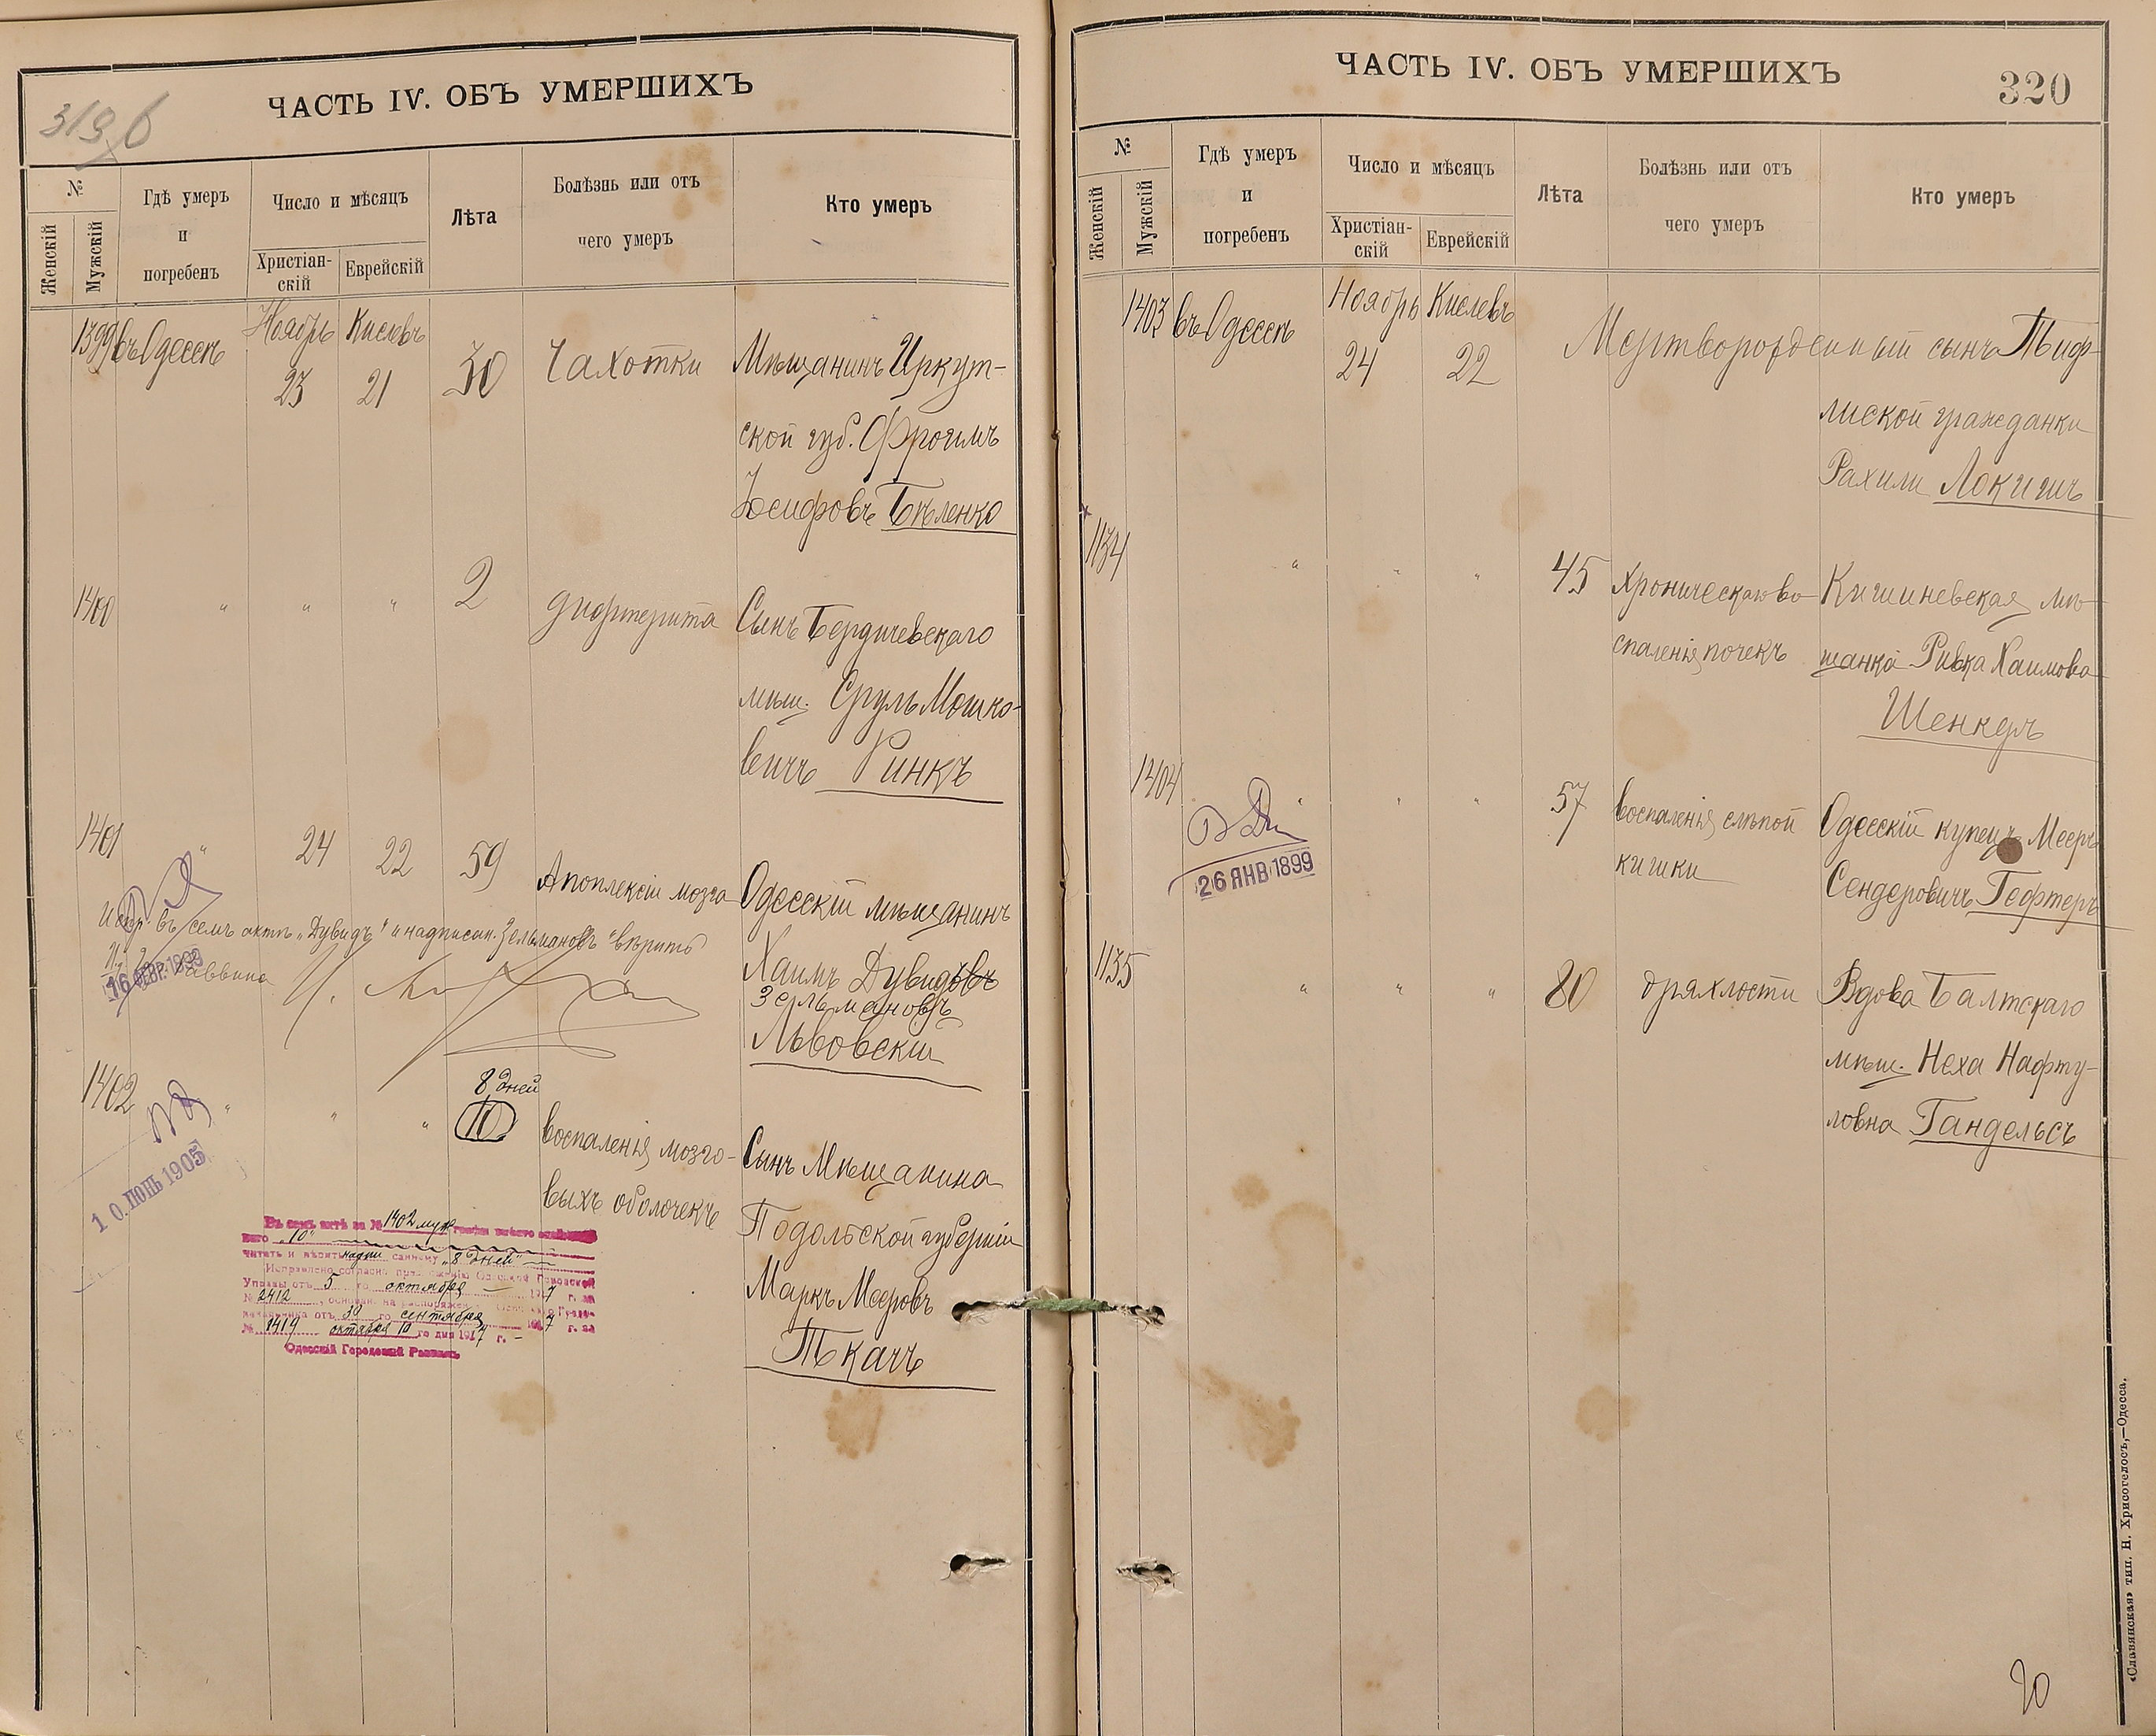 319б
ЧАСТЬ IV. ОБЪ УМЕРШИХЪ
№
Женскій
Мужскій
Гдѣ умеръ
и
погребенъ
Число и мѣсяцъ
Христіан-
скій
Еврейскій
Лѣта
Болѣзнь или отъ
чего умеръ
Кто умеръ
1399 въ Одессѣ Ноябрь 23 Кислевъ 21 30 Чахотки Мѣщанинъ Иркут-
ской губ. Фроимъ
Іосифовъ Бѣленко
1400 " " " 2 дифтерита Сынъ Бердичевскаго
мѣщ. Сруль Мошко-
вичъ Ринкъ
1401 " 24 22 59 Апоплексіи мозга Одесскій мѣщанинъ
Хаимъ Дувидовъ
Зельмановъ
Львовскій
Испр. въ семъ актѣ „Дувидъ" и надписан. Зельмановъ "вѣрить
16 ФЕВР. 1899
1402 " " " 8 дней
10 воспаленія мозго-
выхъ оболочекъ
Сынъ Мѣщанина
Подольской губерніи
Маркъ Мееровъ
Ткачъ
10. ІЮНЬ 1905
Въ семъ актѣ за № 1402 муж
„10"
читать и вѣрить надписанному „8 дней"
Управы отъ 5 го октября 7 г. за
№ 2412
отъ 30 го сентября 7 г. за
№ 8414 октября 10 го дня 1917 г.
Одесскій Городовой Раввинъ
ЧАСТЬ IV. ОБЪ УМЕРШИХЪ
320
№
Женскій
Мужскій
Гдѣ умеръ
и
погребенъ
Число и мѣсяцъ
Христіан-
скій
Еврейскій
Лѣта
Болѣзнь или отъ
чего умеръ
Кто умеръ
1403 въ Одессѣ Ноябрь 24 Кислевъ 22 Мертворожденный сынъ Тиф-
лиской гражданки
Рахили Локшинъ
1134 " " " 45 хроническаго во-
спаленія почекъ
Кишиневская мѣ-
щанка Ривка Хаимова
Шенкеръ
1404 " " " 57 воспаленія слѣпой
кишки
Одесскій купецъ Мееръ
Сендеровичъ Гефтеръ
26 ЯНВ 1899
1135 " " " 80 дряхлости Вдова Балтскаго
мѣщ. Неха Нафту-
ловна Гандельсъ
20
«Славянская» тип. Н. Хрисогелосъ,—Одесса.